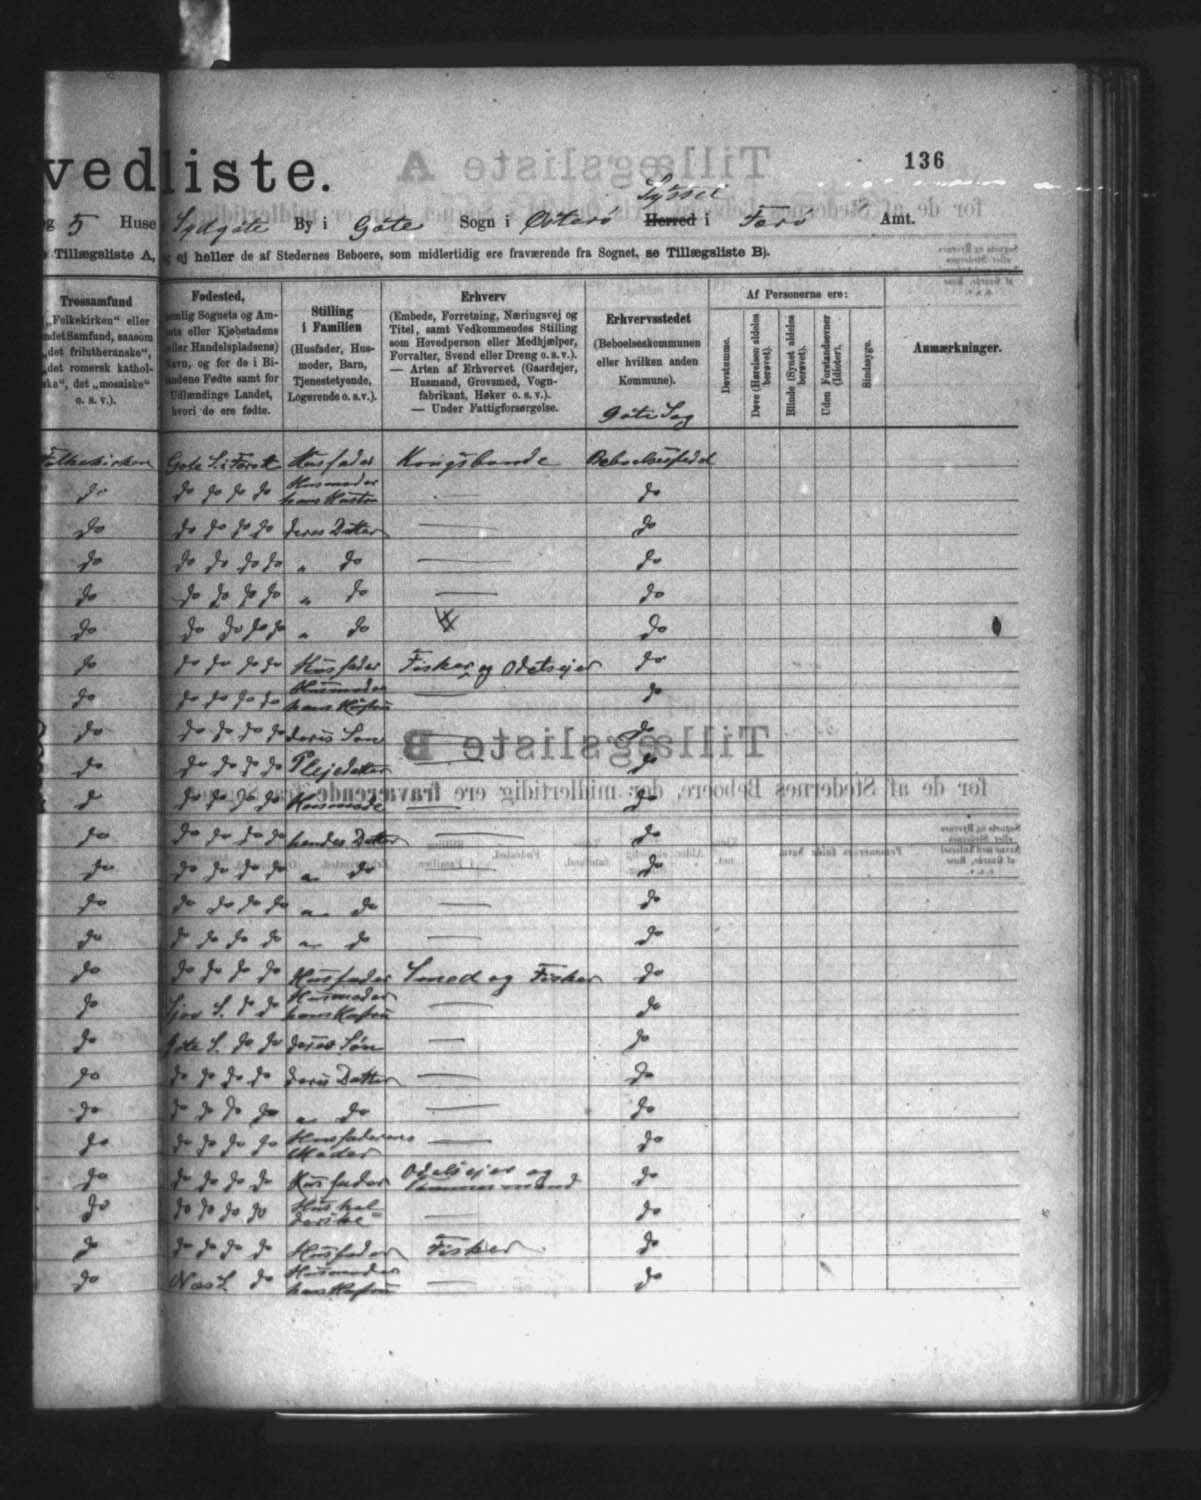 vedliste.
136
Syssel
og 5 Huse Sydgøte By i Gøte Sogn i Østerø Herred i Færø Amt.
Tillægsliste A, ej heller de af Stedernes Beboere, som midlertidig ere fraværende fra Sognet, se Tillægsliste B).
Trossamfund
(„Folkekirken“ eller
andet Samfund, saasom
„det frilutheranske“,
„det romersk kathol-
ske“, det „mosaiske“
o. s. v.).
Fødested,
nemlig Sognets og Am-
ets eller Kjøbstadens
eller Handelspladsens)
Navn, og for de i Bi-
landene Fødte samt for
Udlændinge Landet,
hvori de ere fødte.
Stilling
i Familien
(Husfader, Hus-
moder, Barn,
Tjenestetyende,
Logerende o. s. v.).
Erhverv
(Embede, Forretning, Næringsvej og
Titel, samt Vedkommendes Stilling
som Hovedperson eller Medhjælper,
Forvalter, Svend eller Dreng o. s. v.).
— Arten af Erhvervet (Gaardejer,
Husmand, Grovsmed, Vogn-
fabrikant, Høker o. s. v.).
— Under Fattigforsørgelse.
Erhvervsstedet
(Beboelseskommunen
eller hvilken anden
Kommune).
Gøte Sog
Af Personerne ere:
Døvstumme.
Døve (Hørelsen aldeles
berøvet).
Blinde (Synet aldeles
berøvet).
Uden Forstandsevner
(Idioter).
Sindssyge.
Anmærkninger.
Folkekirken Gøte S. i Færø Husfader Kongsbonde Beboelsessted
do do do do do Husmoder hans Kustru — do
do do do do do deres Datter — do
do do do do do „ do — do
do do do do do „ do — do
do do do do do „ do do
do do do do do Husfader Fisker og Odelsejer do
do do do do do Husmoder hans Hustru — do
do do do do do deres Søn — do
do do do do do Plejedatter — do
do do do do do Husmoder — do
do do do do do hendes Datter — do
do do do do do „ do — do
do do do do do „ do — do
do do do do do „ do — do
do do do do do Husfader Smed og Fisker do
do Sjov S. do do Husmoder hans Hustru — do
do Gøte S. do do deres Søn — do
do do do do do deres Datter — do
do do do do do „ do — do
do do do do do Husfaderens Moder — do
do do do do do Husfader Odelsejer og Tømmermand do
do do do do do Hushol=derske — do
do do do do do Husfader Fisker do
do Næs S. do Husmoder hans Hustru — do